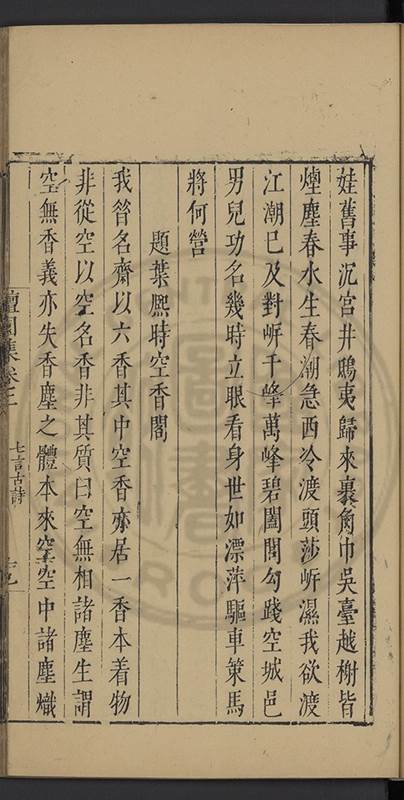 娃舊事沉宮井鴟夷歸來裹角巾吳臺越榭皆
煙塵春水生春潮急西泠渡頭莎岍濕我欲渡
江潮巳及對岍千峰萬峰碧闔閭勾踐空城邑
男兒功名幾時立眼看身世如漂萍驅車策馬
將何營
題葉熙時空香閣
我嘗名齋以六香其中空香亦居一香本着物
非從空以空名香非其質曰空無相諸塵生謂
空無香義亦失香塵之體本來空空中諸塵熾
集卷三
七言古詩